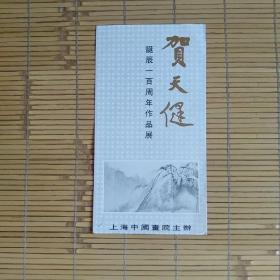 賀天健
誕辰一百周年作品展
上海中國畫院主辦